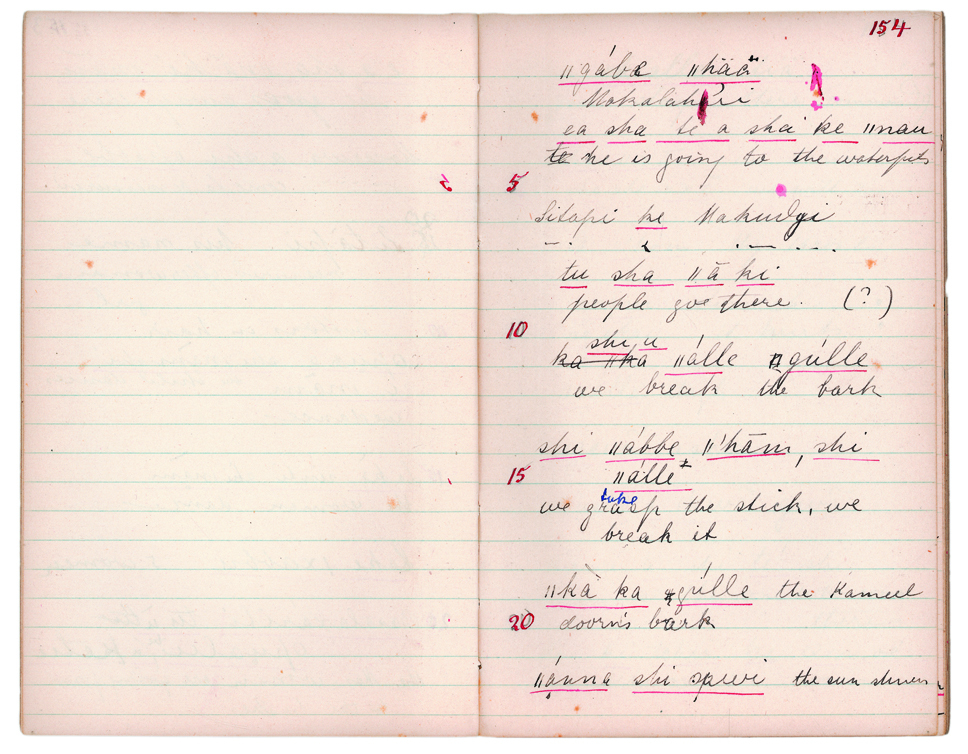 154
ǁgábe ǁhāä
Makalahari
ea sha te a sha ke ǁnau
te he is going to the waterpits
5
Sitapi ke Makudgi
tu sha ǁā ki
people go there. (?)
10
shi u
ka ǁka ǁálle ǂgúlle
we break the bark
shi ǁábbe ǁ'hām, shi
15 ǁálle
take
we grasp the stick, we
break it
ǁkā ka ǂgúlle the Kameel
20 doorn's bark
ǁánna shi the sun shines